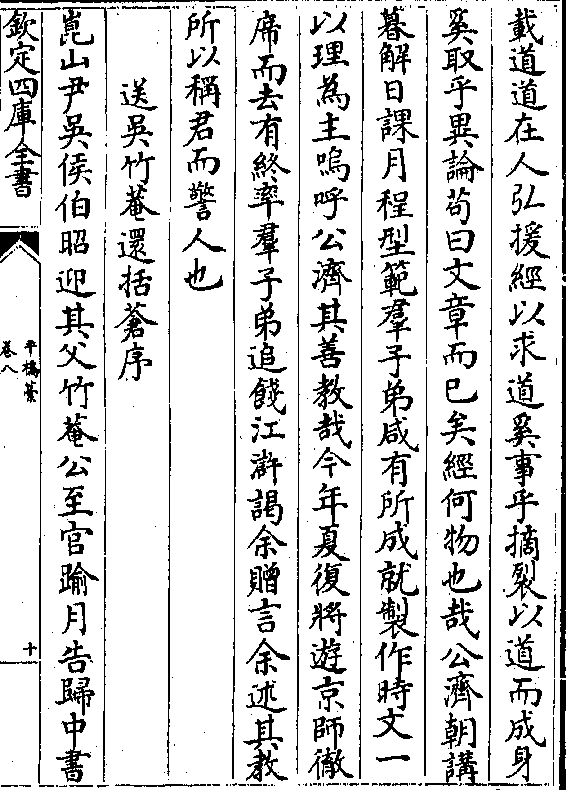 載道道在人弘援經以求道奚事乎摘裂以道而成身
奚取乎異論茍曰文章而已矣經何物也哉公濟朝講
暮解日課月程型範羣子弟咸有所成就製作時文一
以理為主嗚呼公濟其善教哉今年夏復將遊京師徹
席而去有終率羣子弟追餞江滸謁余贈言余述其教
所以稱君而警人也
送吳竹菴還括蒼序
崑山尹吳侯伯昭迎其父竹菴公至官踰月告歸中書
欽定四庫全書
平橋藁
卷八
十